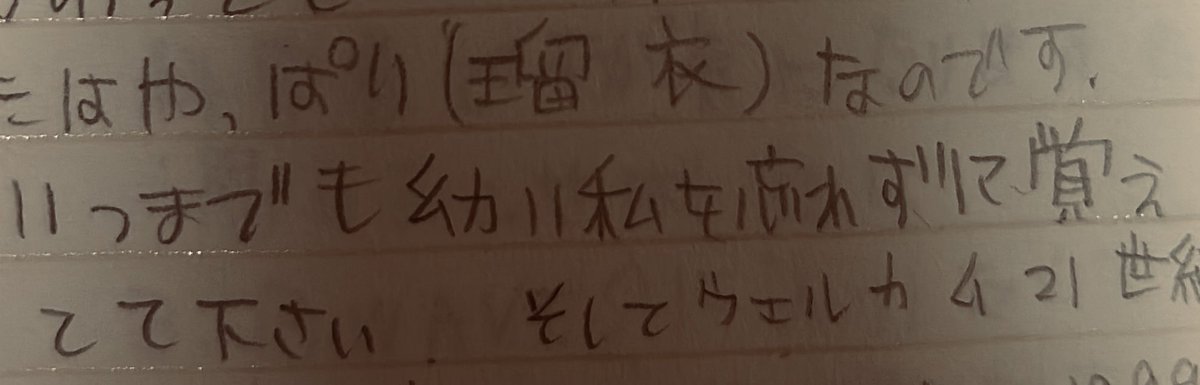 はやっぱり(瑠衣)なのです.
いつまでも幼い私を忘れずに、覚え
てて下さい. そしてウェルカム21世紀